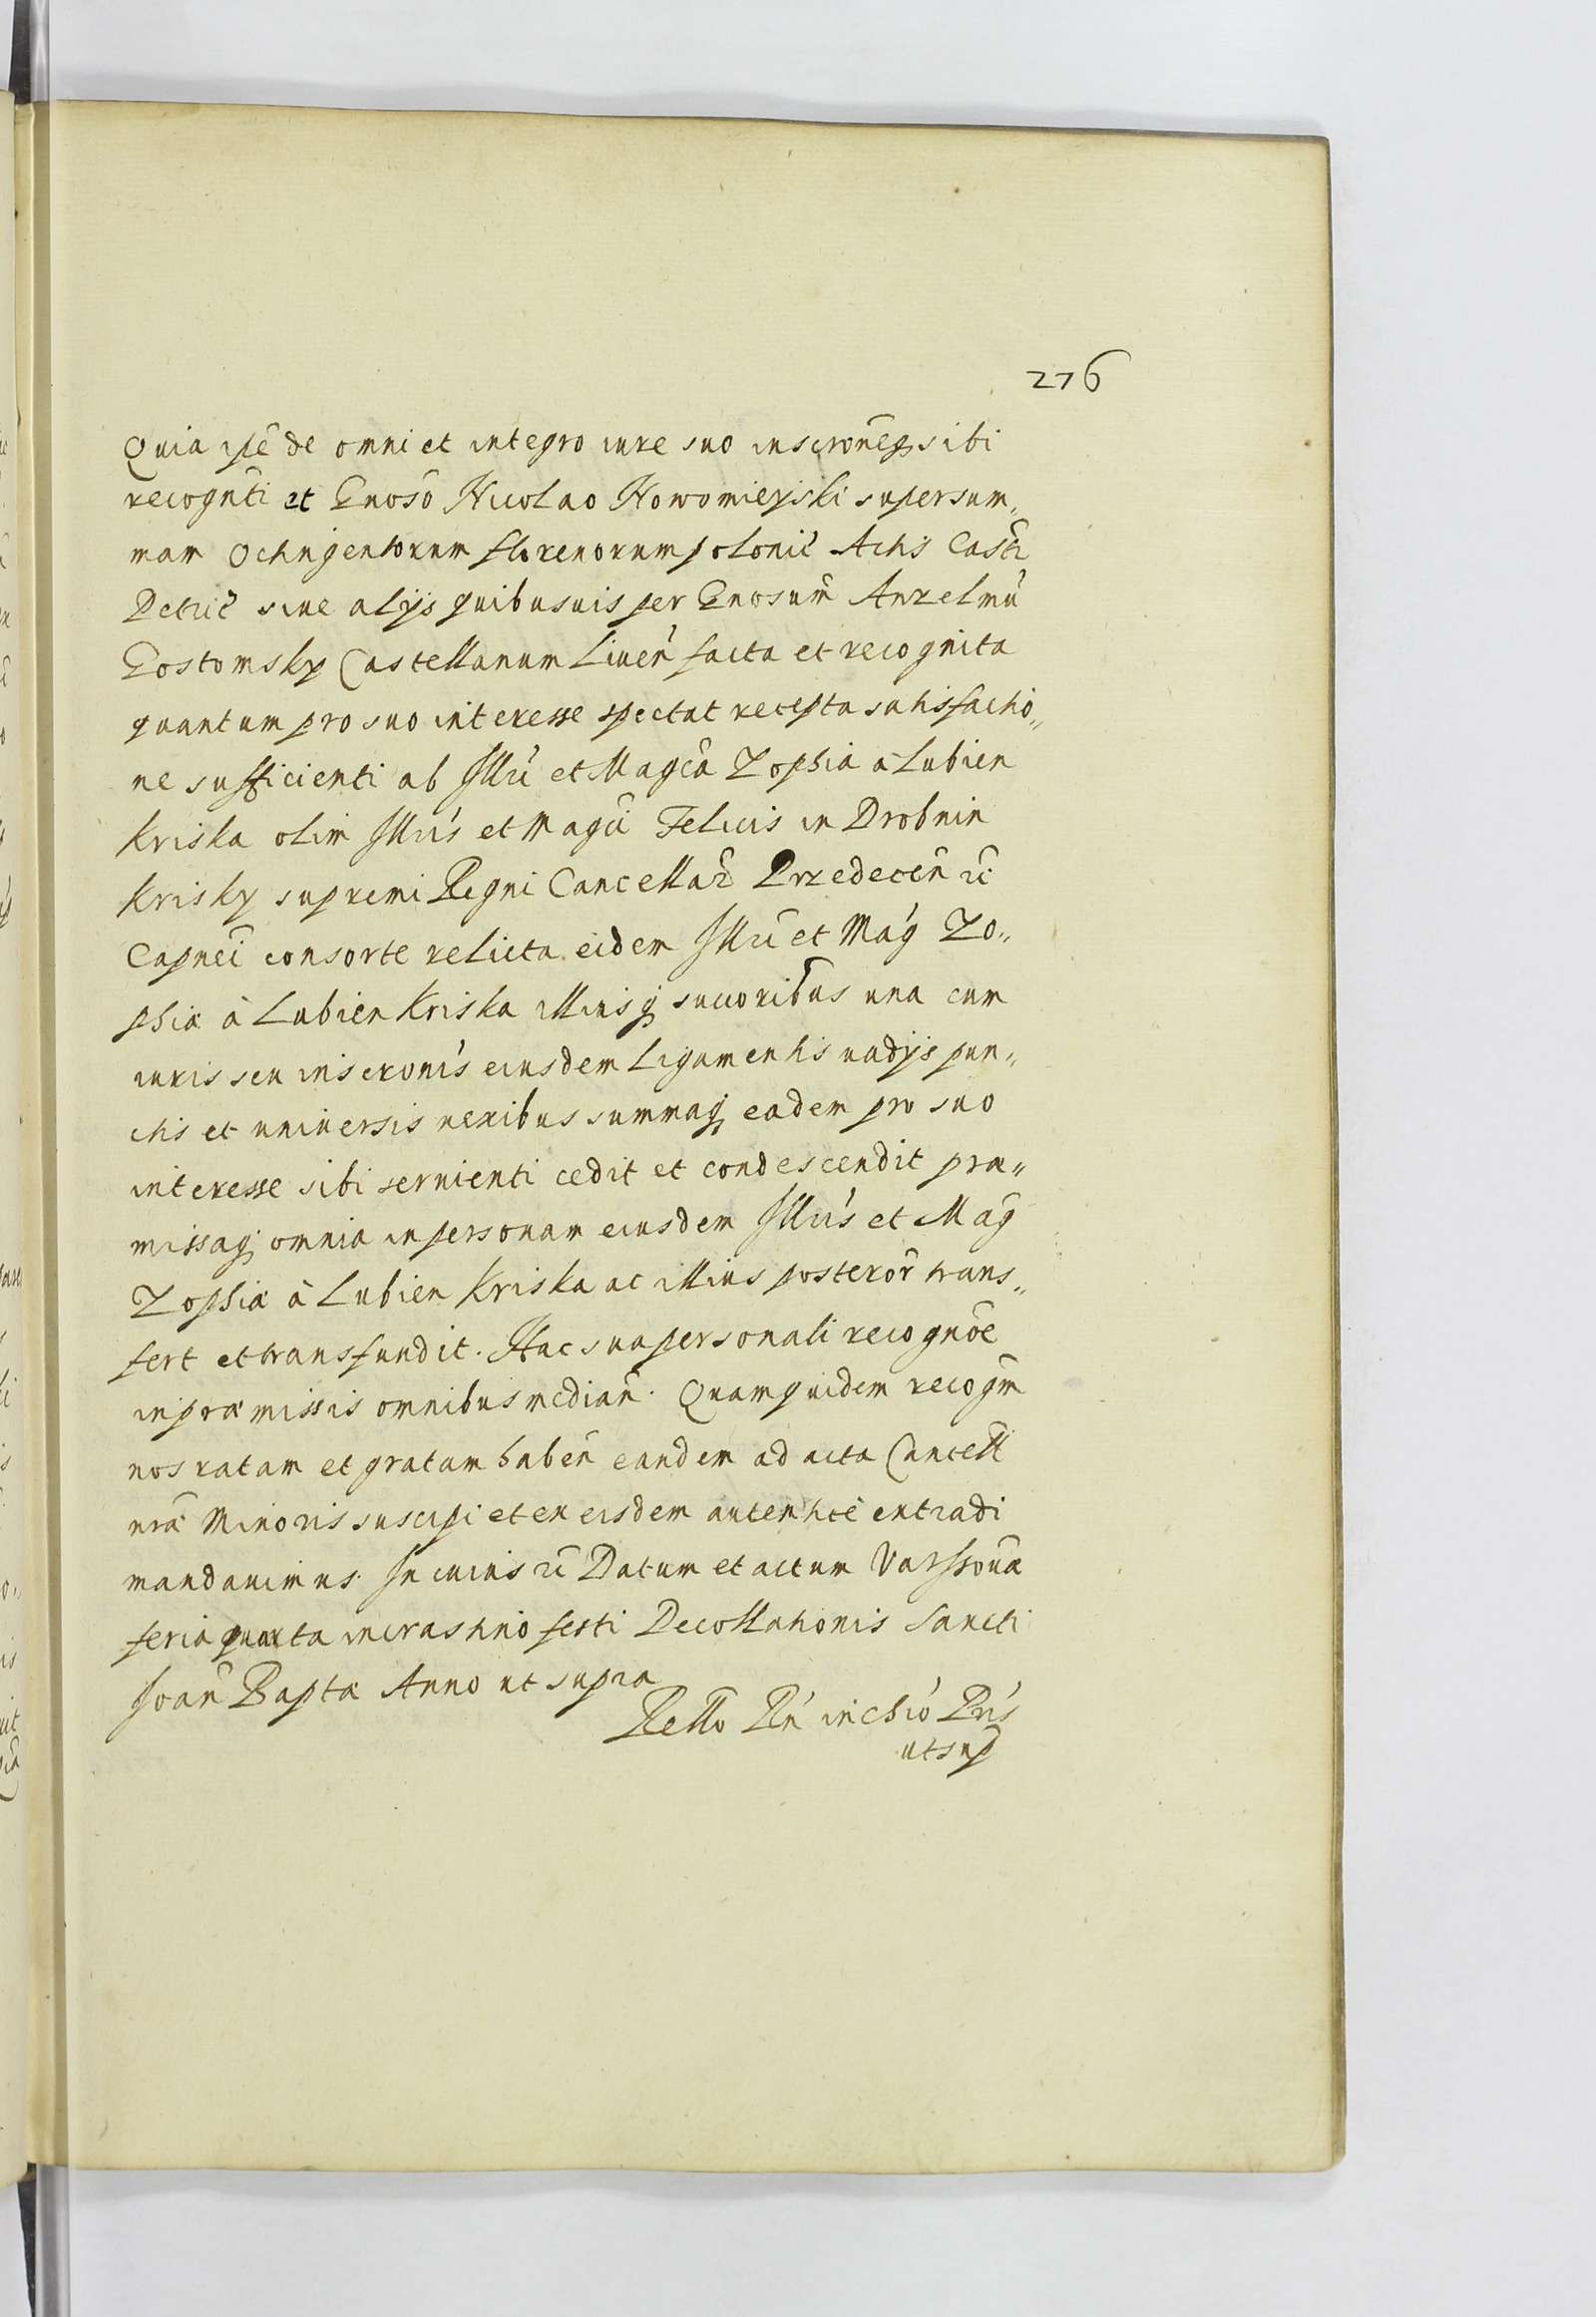 276
Quia ipe de omni et integro iure suo inscroneq sibi
recognti et Gnoso Nicolao Nowomieyski super sum„
mam Octingentorum florenorum polonic Actis Castri
siue alijs quibusuis per Gnosum Anzelmu
Gostomsky Castellanum Liuen facta et recognita
quantum pro suo interesse spectat recepta satisfactio„
ne sufficienti ab Illri et Magca Zophia a Lubien
Kriska olim Illris et Magci Felicis in Drobnin
Krisky supremi Regni Cancellar Przedecen etc
Capnei consorte relicta eidem Illri et Mag Zo„
phiæ à Lubien Kriska illiusq succoribus una cum
iuris seu inscronis eiusdem ligamentis vadijs pun„
ctis et universis nexibus summaq eadem pro suo
interesse sibi seruienti cedit et condescendit præ„
missaq omnia in personam eiusdem Illris et Mag
Zophiæ à Lubien Kriska ac illius posteror trans„
fert et transfundit. Hac sua personali recognoe
in præmissis omnibus median. Quam quidem recogm
nos ratam et gratam haben eandem ad acta Cancell
nræ Minoris suscipi et ex eisdem autentice extradi
mandauimus. In cuius etc Datum et actum Varssouiæ
feria quarta in crastino festi Decollationis Sancti
Joan Baptæ Anno ut supra
Rello Rn in chio Pris
ut sup